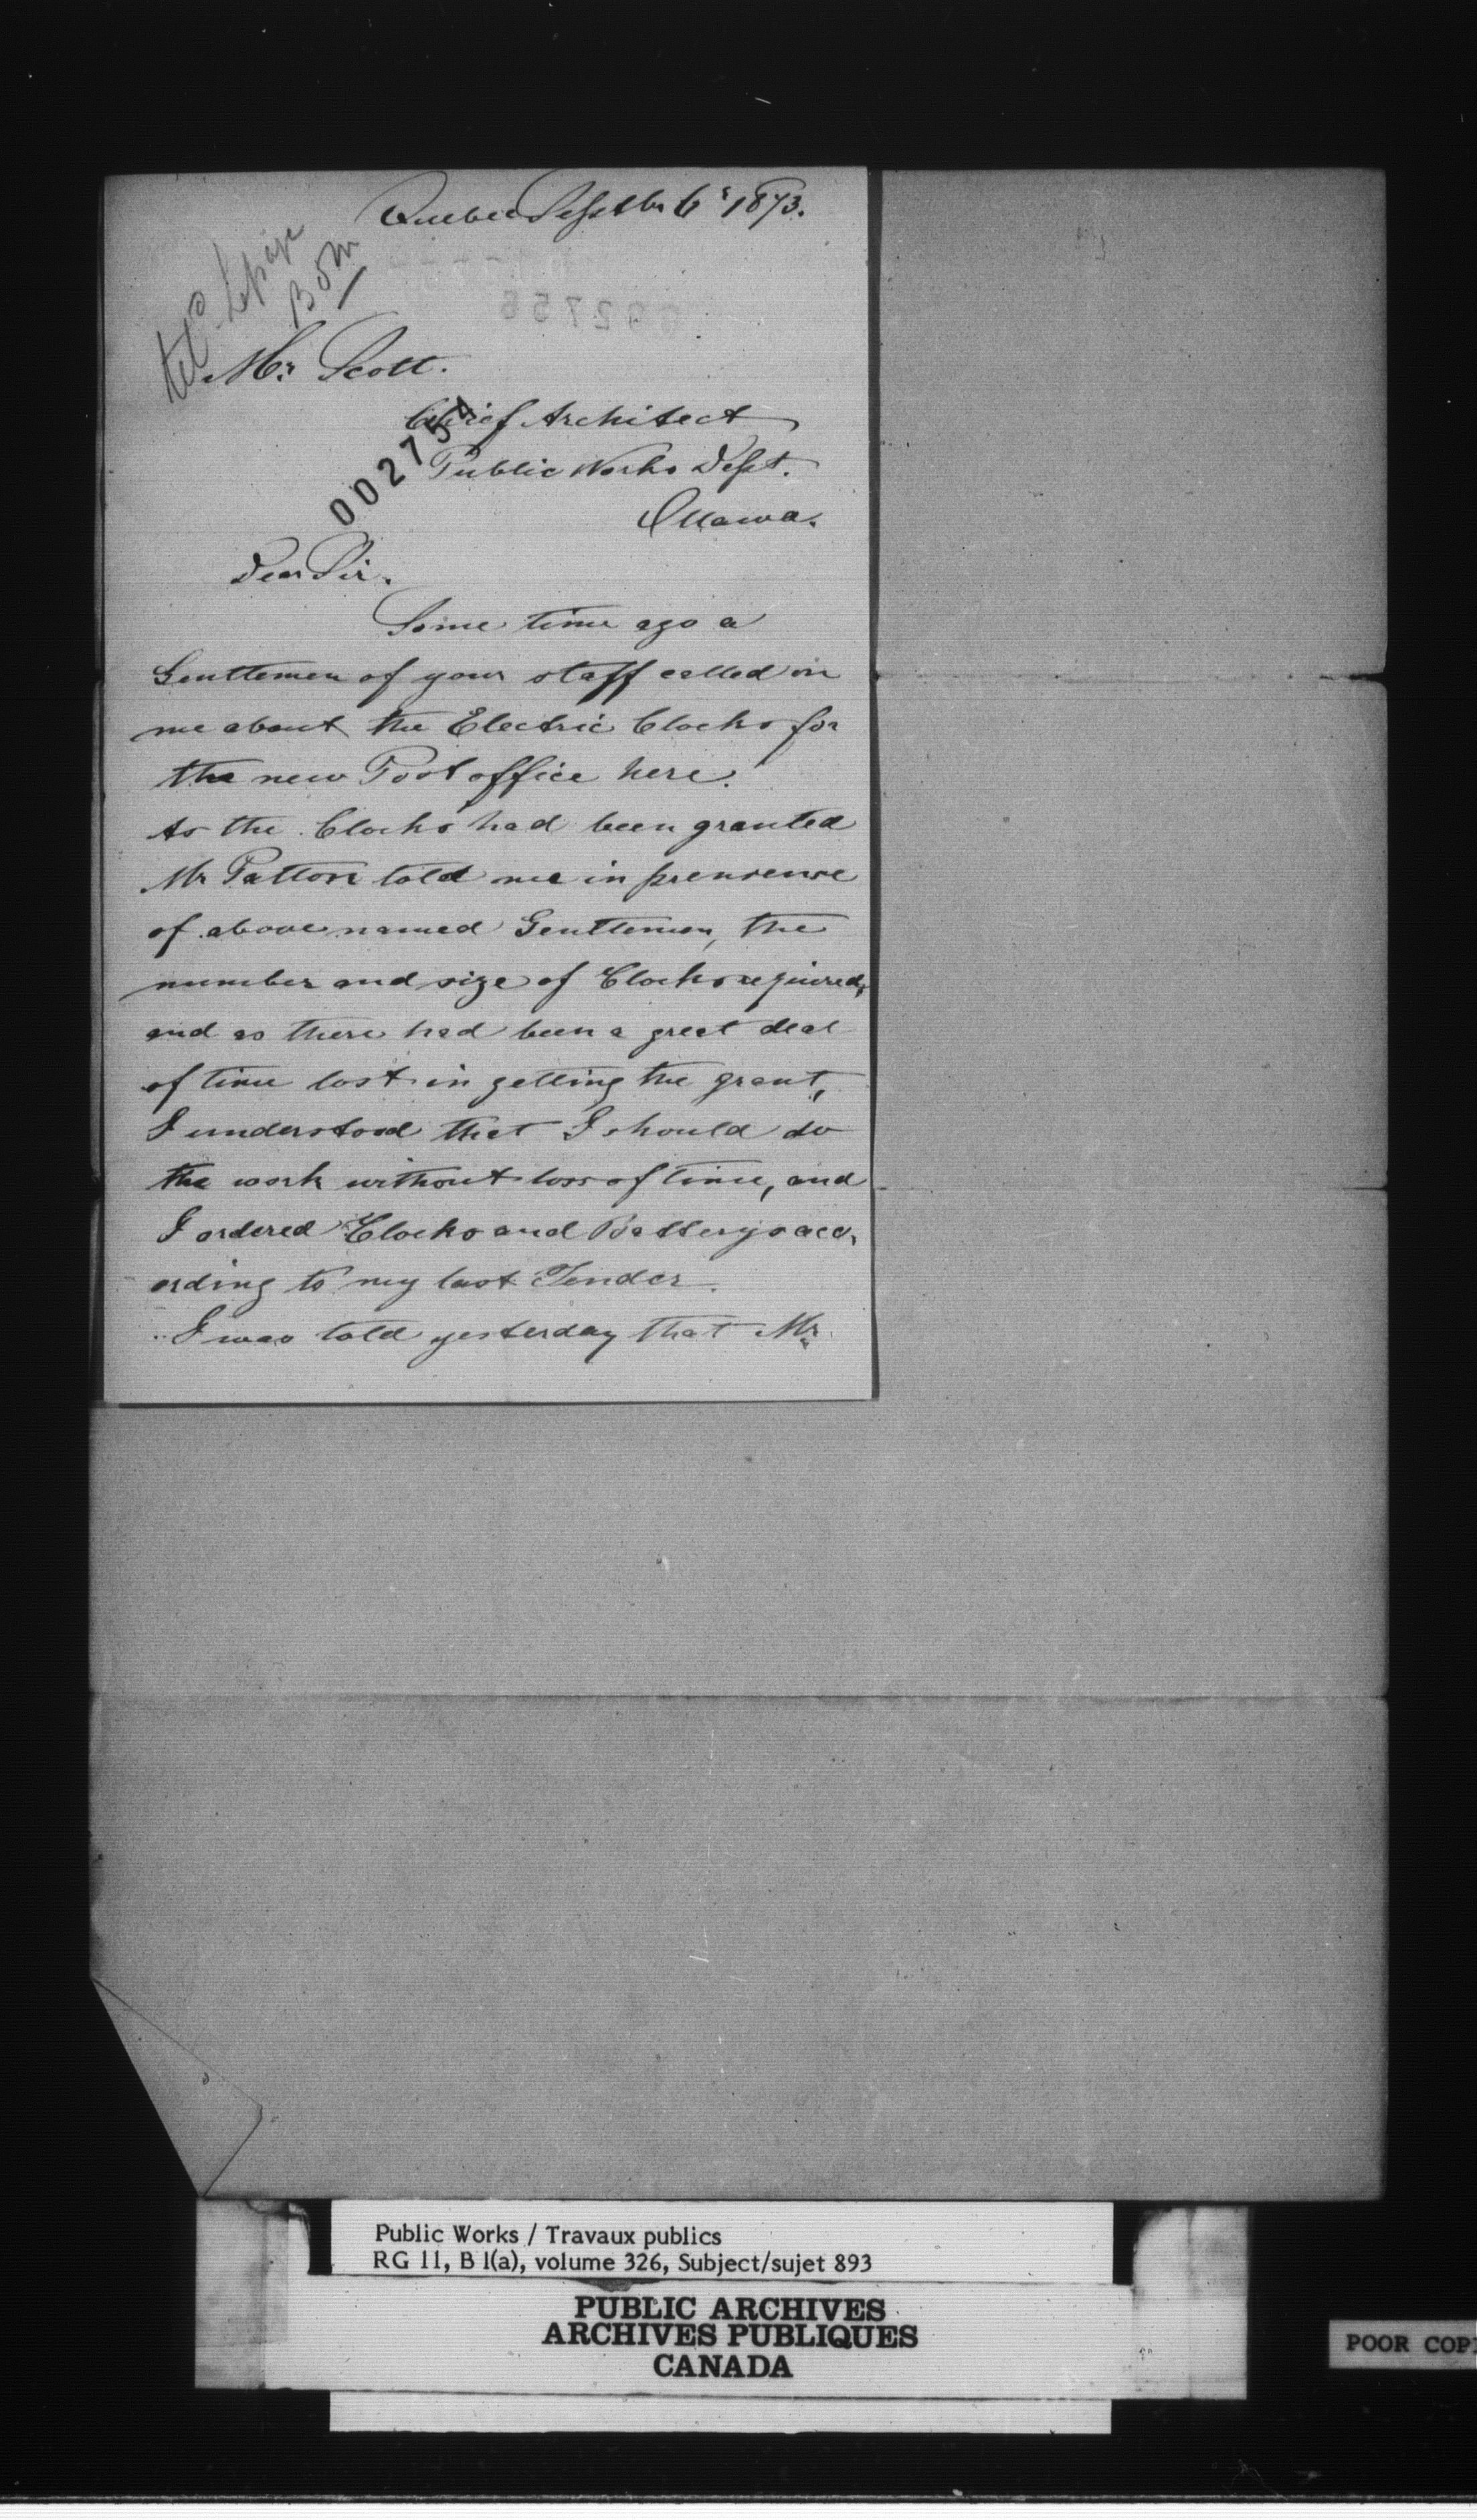 Quebec Septbr 6th 1873.
Mr. Scott.
002754
Chief Architect
Public Works Dept.
Ottawa.
Dear Sir.
Some time ago a
Genttemen of your staff called on
me about the Electric Clocks for
the new Postoffice here.
As the Clocks had been granted
Mr Patton told me in prensense
of above named Genttemen, the
number and size of Clocks required,
and as there had been a great deal
of time lost in getting the grant,
I understood that I should do
the work without loss of time, and
I ordered Clocks and Batterys acc,
ording to my last Tender.
I was told yesterday that Mr.
Public Works / Travaux publics
RG 11, B 1(a), volume 326, Subject/sujet 893
PUBLIC ARCHIVES
ARCHIVES PUBLIQUES
CANADA
POOR COP